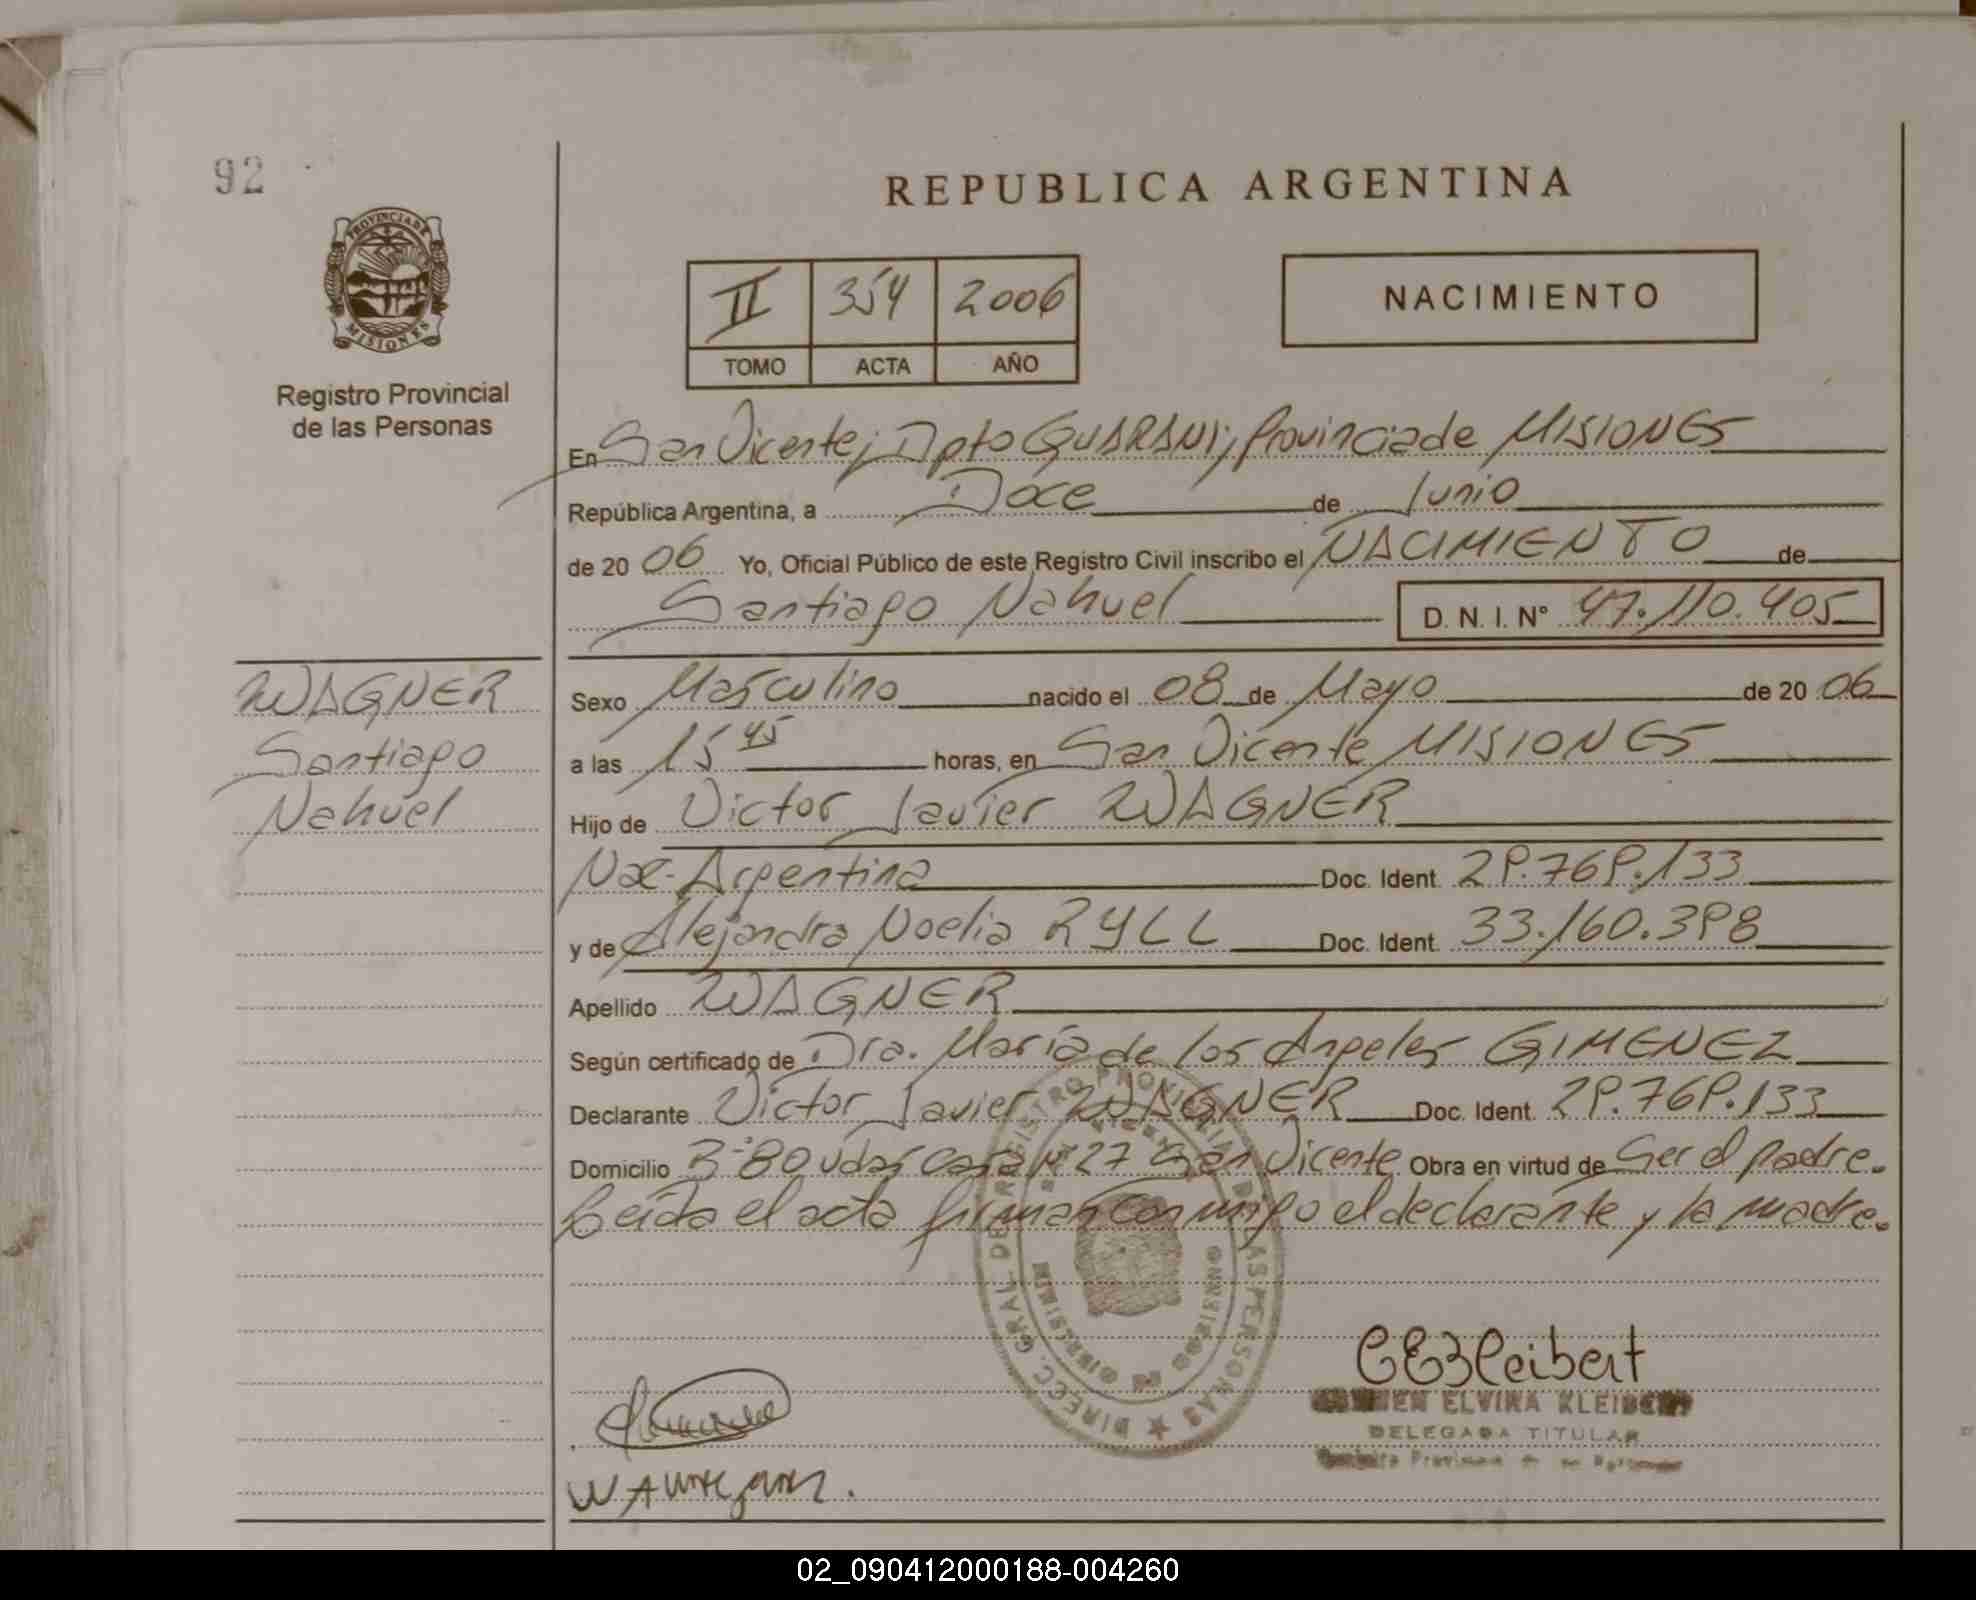 92
REPUBLICA ARGENTINA
PROVINCIA DE
MISIONES
Registro Provincial
de las Personas
II 354 2006
TOMO ACTA AÑO
NACIMIENTO
En San Vicente, Dpto GUARANI, Provincia de MISIONES
República Argentina, a Doce de Junio
de 2006 Yo, Oficial Público de este Registro Civil inscribo el NACIMIENTO de
Santiago Nahuel D. N. I. N° 47.110.405
WAGNER
Santiago
Nahuel
Sexo Masculino nacido el 08 de Mayo de 2006
a las 15 45 horas, en San Vicente MISIONES
Hijo de Victor Javier WAGNER
Nac. Argentina Doc. Ident. 29.769.133
y de Alejandra Noelia RYLL Doc. Ident. 33.160.398
Apellido WAGNER
Según certificado de Dra. María de los Angeles GIMENEZ
Declarante Victor Javier WAGNER Doc. Ident. 29.769.133
Domicilio B° 80 vdas casa N° 27 San Vicente Obra en virtud de Ser el padre.
Leída el acta firman conmigo el declarante y la madre.
DIRECC. GRAL. DE REGISTRO PROVINCIAL DE LAS PERSONAS
SAN VICENTE
MISIONES
CEKleibert
ELVIRA KLEIBERT
DELEGADA TITULAR
02_090412000188-004260